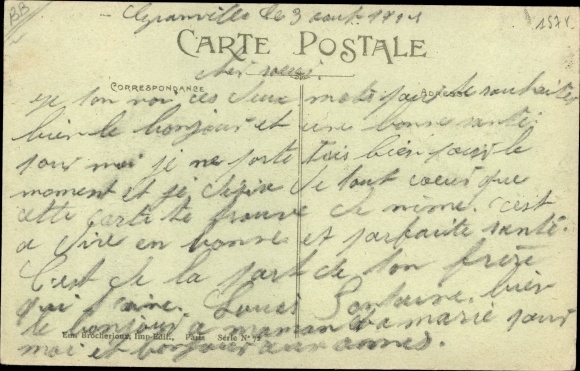 BB
Granville le 3 août 1914
1574
CARTE POSTALE
CORRESPONDANCE
ADRESSE
cher soeur.
je ces deux mots pour te souhaiter
bien le bonjour et une bonne santé
pour moi je me porte très bien pour le
moment et je désire de tout coeur que
cette carte te trouve de même. c'est
a dire en bonne et parfaite santé.
C'est de la part de ton frère
qui t'aime. Louis Fontaine. bien
le bonjour a maman et a marie pour
moi et bonjour aux amies.
Imp-Edit., Paris Série N° 72